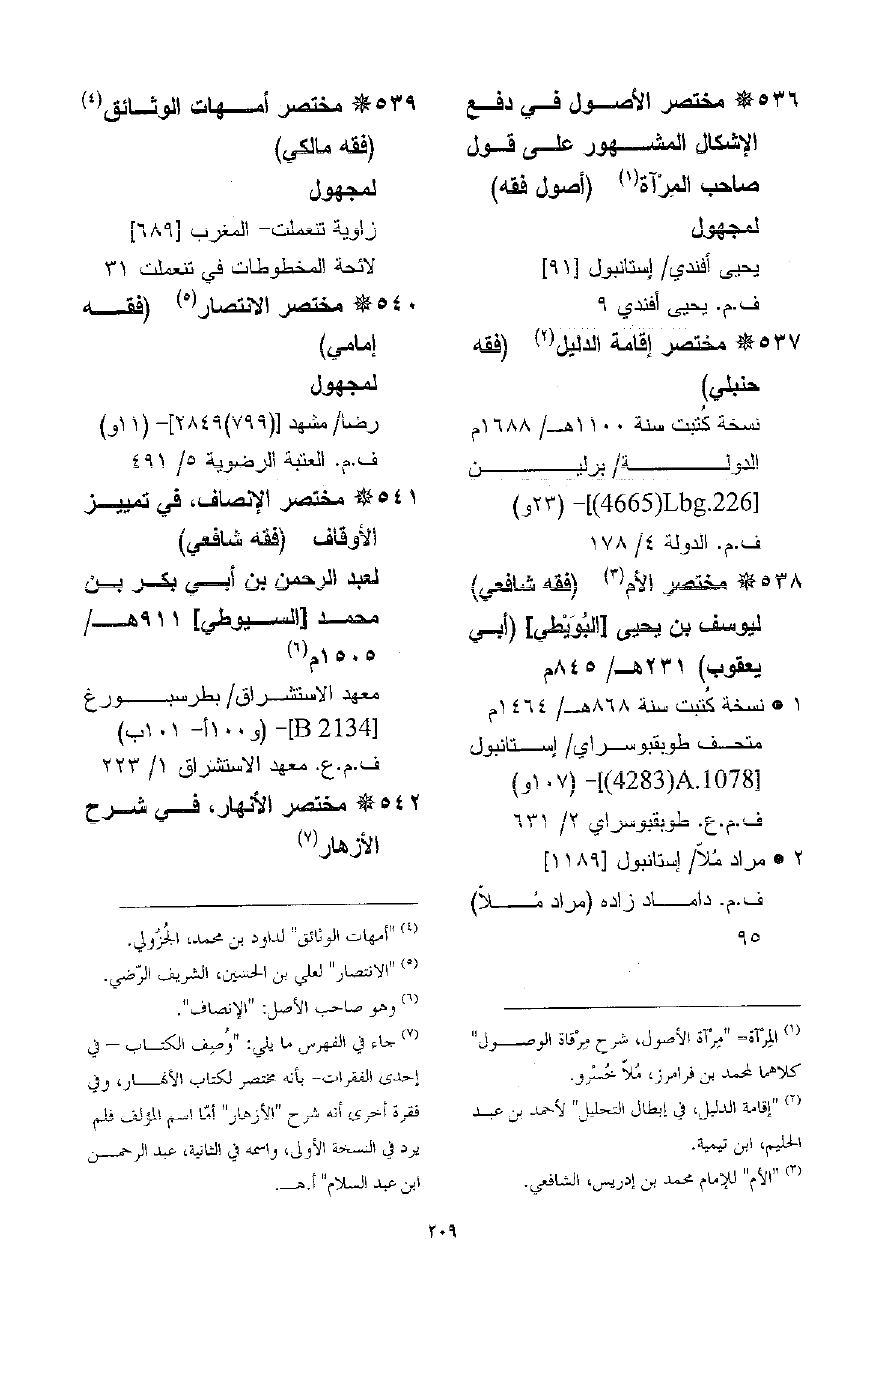 ٥٣٦ ❋ مختصر الأصول في دفع
الإشكال المشهور على قول
صاحب المرآة(١) (أصول فقه)
لمجهول
يحيى أفندي/ إستانبول [٩١]
ف.م. يحيى أفندي ٩
٥٣٧ ❋ مختصر إقامة الدليل(٢) (فقه
حنبلي)
نسخة كُتبت سنة ١١٠٠هـ/ ١٦٨٨م
الدولة/ برلين
[Lbg.226(4665)]– (٢٣و)
ف.م. الدولة ٤/ ١٧٨
٥٣٨ ❋ مختصر الأم(٣) (فقه شافعي)
ليوسف بن يحيى [البُوَيْطي] (أبي
يعقوب) ٢٣١هـ/ ٨٤٥م
١ • نسخة كُتبت سنة ٨٦٨هـ/ ١٤٦٤م
متحف طوبقبوسراي/ إستانبول
[A.1078(4283)]– (١٠٧و)
ف.م.ع. طوبقبوسراي ٢/ ٦٣١
٢ • مراد مُلاّ/ إستانبول [١١٨٩]
ف.م. داماد زاده (مراد مُلاّ)
٩٥
(١) المِرْآة= "مِرْآة الأصول، شرح مِرْقاة الوصول"
كلاهما لمحمد بن فرامرز، مُلاّ خُسْرو.
(٢) "إقامة الدليل، في إبطال التحليل" لأحمد بن عبد
الحليم، ابن تيمية.
(٣) "الأم" للإمام محمد بن إدريس، الشافعي.
٥٣٩ ❋ مختصر أمهات الوثائق(٤)
(فقه مالكي)
لمجهول
زاوية تنعملت– المغرب [٦٨٩]
لائحة المخطوطات في تنعملت ٣١
٥٤٠ ❋ مختصر الانتصار(٥) (فقه
إمامي)
لمجهول
رضا/ مشهد [(٧٩٩)٢٨٤٩]– (١١و)
ف.م. العتبة الرضوية ٥/ ٤٩١
٥٤١ ❋ مختصر الإنصاف، في تمييز
الأوقاف (فقه شافعي)
لعبد الرحمن بن أبي بكر بن
محمد [السيوطي] ٩١١هـ/
١٥٠٥م(٦)
معهد الاستشراق/ بطرسبورغ
[B 2134]– (و ١٠٠أ– ١٠١ب)
ف.م.ع. معهد الاستشراق ١/ ٢٢٣
٥٤٢ ❋ مختصر الأنهار، في شرح
الأزهار(٧)
(٤) "أمهات الوثائق" لداود بن محمد، الجُزُولي.
(٥) "الانتصار" لعلي بن الحسين، الشريف الرّضي.
(٦) وهو صاحب الأصل: "الإنصاف".
(٧) جاء في الفهرس ما يلي: "وُصِف الكتاب – في
إحدى الفقرات– بأنه مختصر لكتاب الأنهار، وفي
فقرة أخرى أنه شرح "الأزهار" أمّا اسم المؤلف فلم
يرد في النسخة الأولى، واسمه في الثانية، عبد الرحمن
ابن عبد السلام" أ.هـ.
٢٠٩